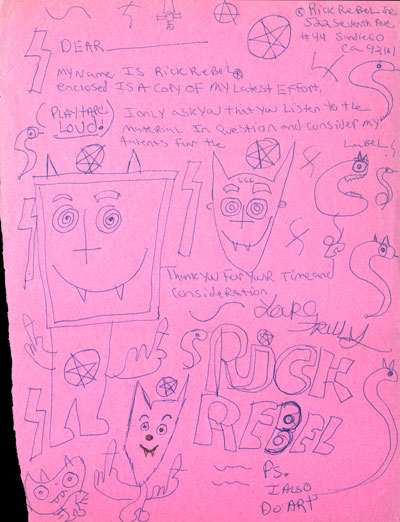 © Rick Rebel Inc
522 Seventh Ave
#44 Sandiego
Ca 92101
DEAR
My Name Is Rick Rebel®
enclosed Is A Copy of My Latest Effort,
(PLAY TAPE LOUD!)
I only ask you that you Listen to the
material In question and consider my
talents for the Label
Thank you For Your Time and
Consideration
Yours
Truly
RICK
REBEL
Ps.
I Also
Do ART